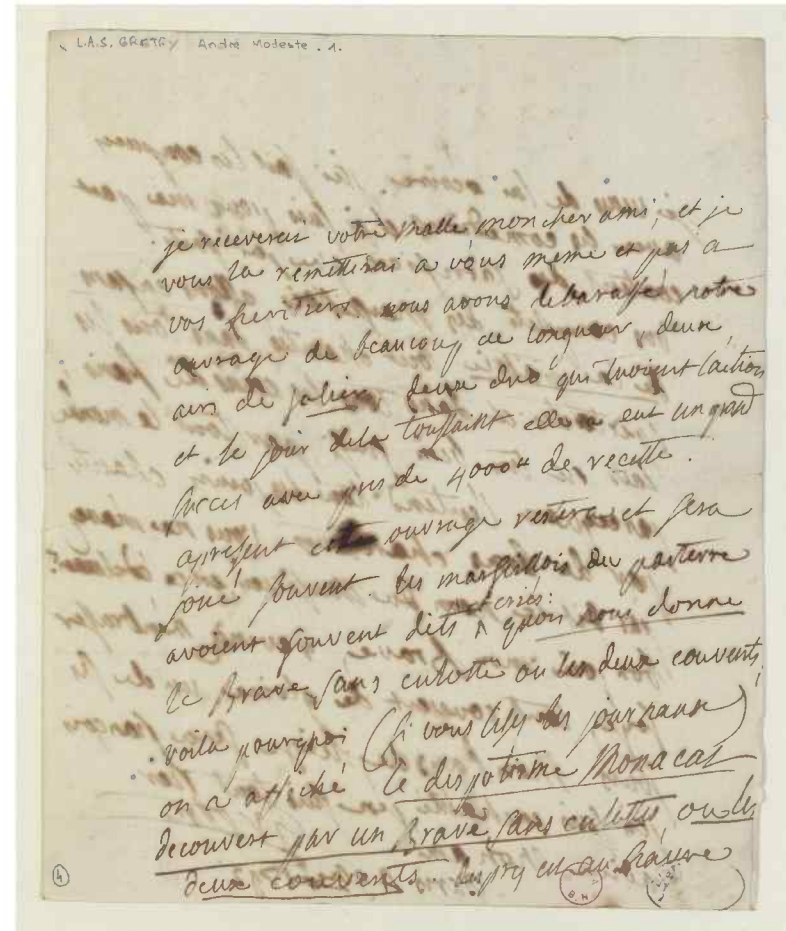 L.A.S. GRETRY André Modeste . 1.
je receverai votre malle mon cher ami, et je
vous la remetterai a vous meme et pas a
vos heritiers. nous avons debarassé notre
ouvrage de beaucoup de longueur, deux
airs de jalier, deux duo qui tuoient l'action
et le jour de la toussaint elle a eut un grand
succes avec pres de 4000 de recette.
apresent cette ouvrage restera et sera
joué souvent. les marseillois du parterre
avoient souvent dits et criés: quon nous donne
le Brave sans culotte ou les deux couvents,
voila pourquoi (si vous lisez les journaux)
on a affiché le despotisme Monacal
decouvert par un Brave sans culottes ou les
deux couvents. en au
4
B. N